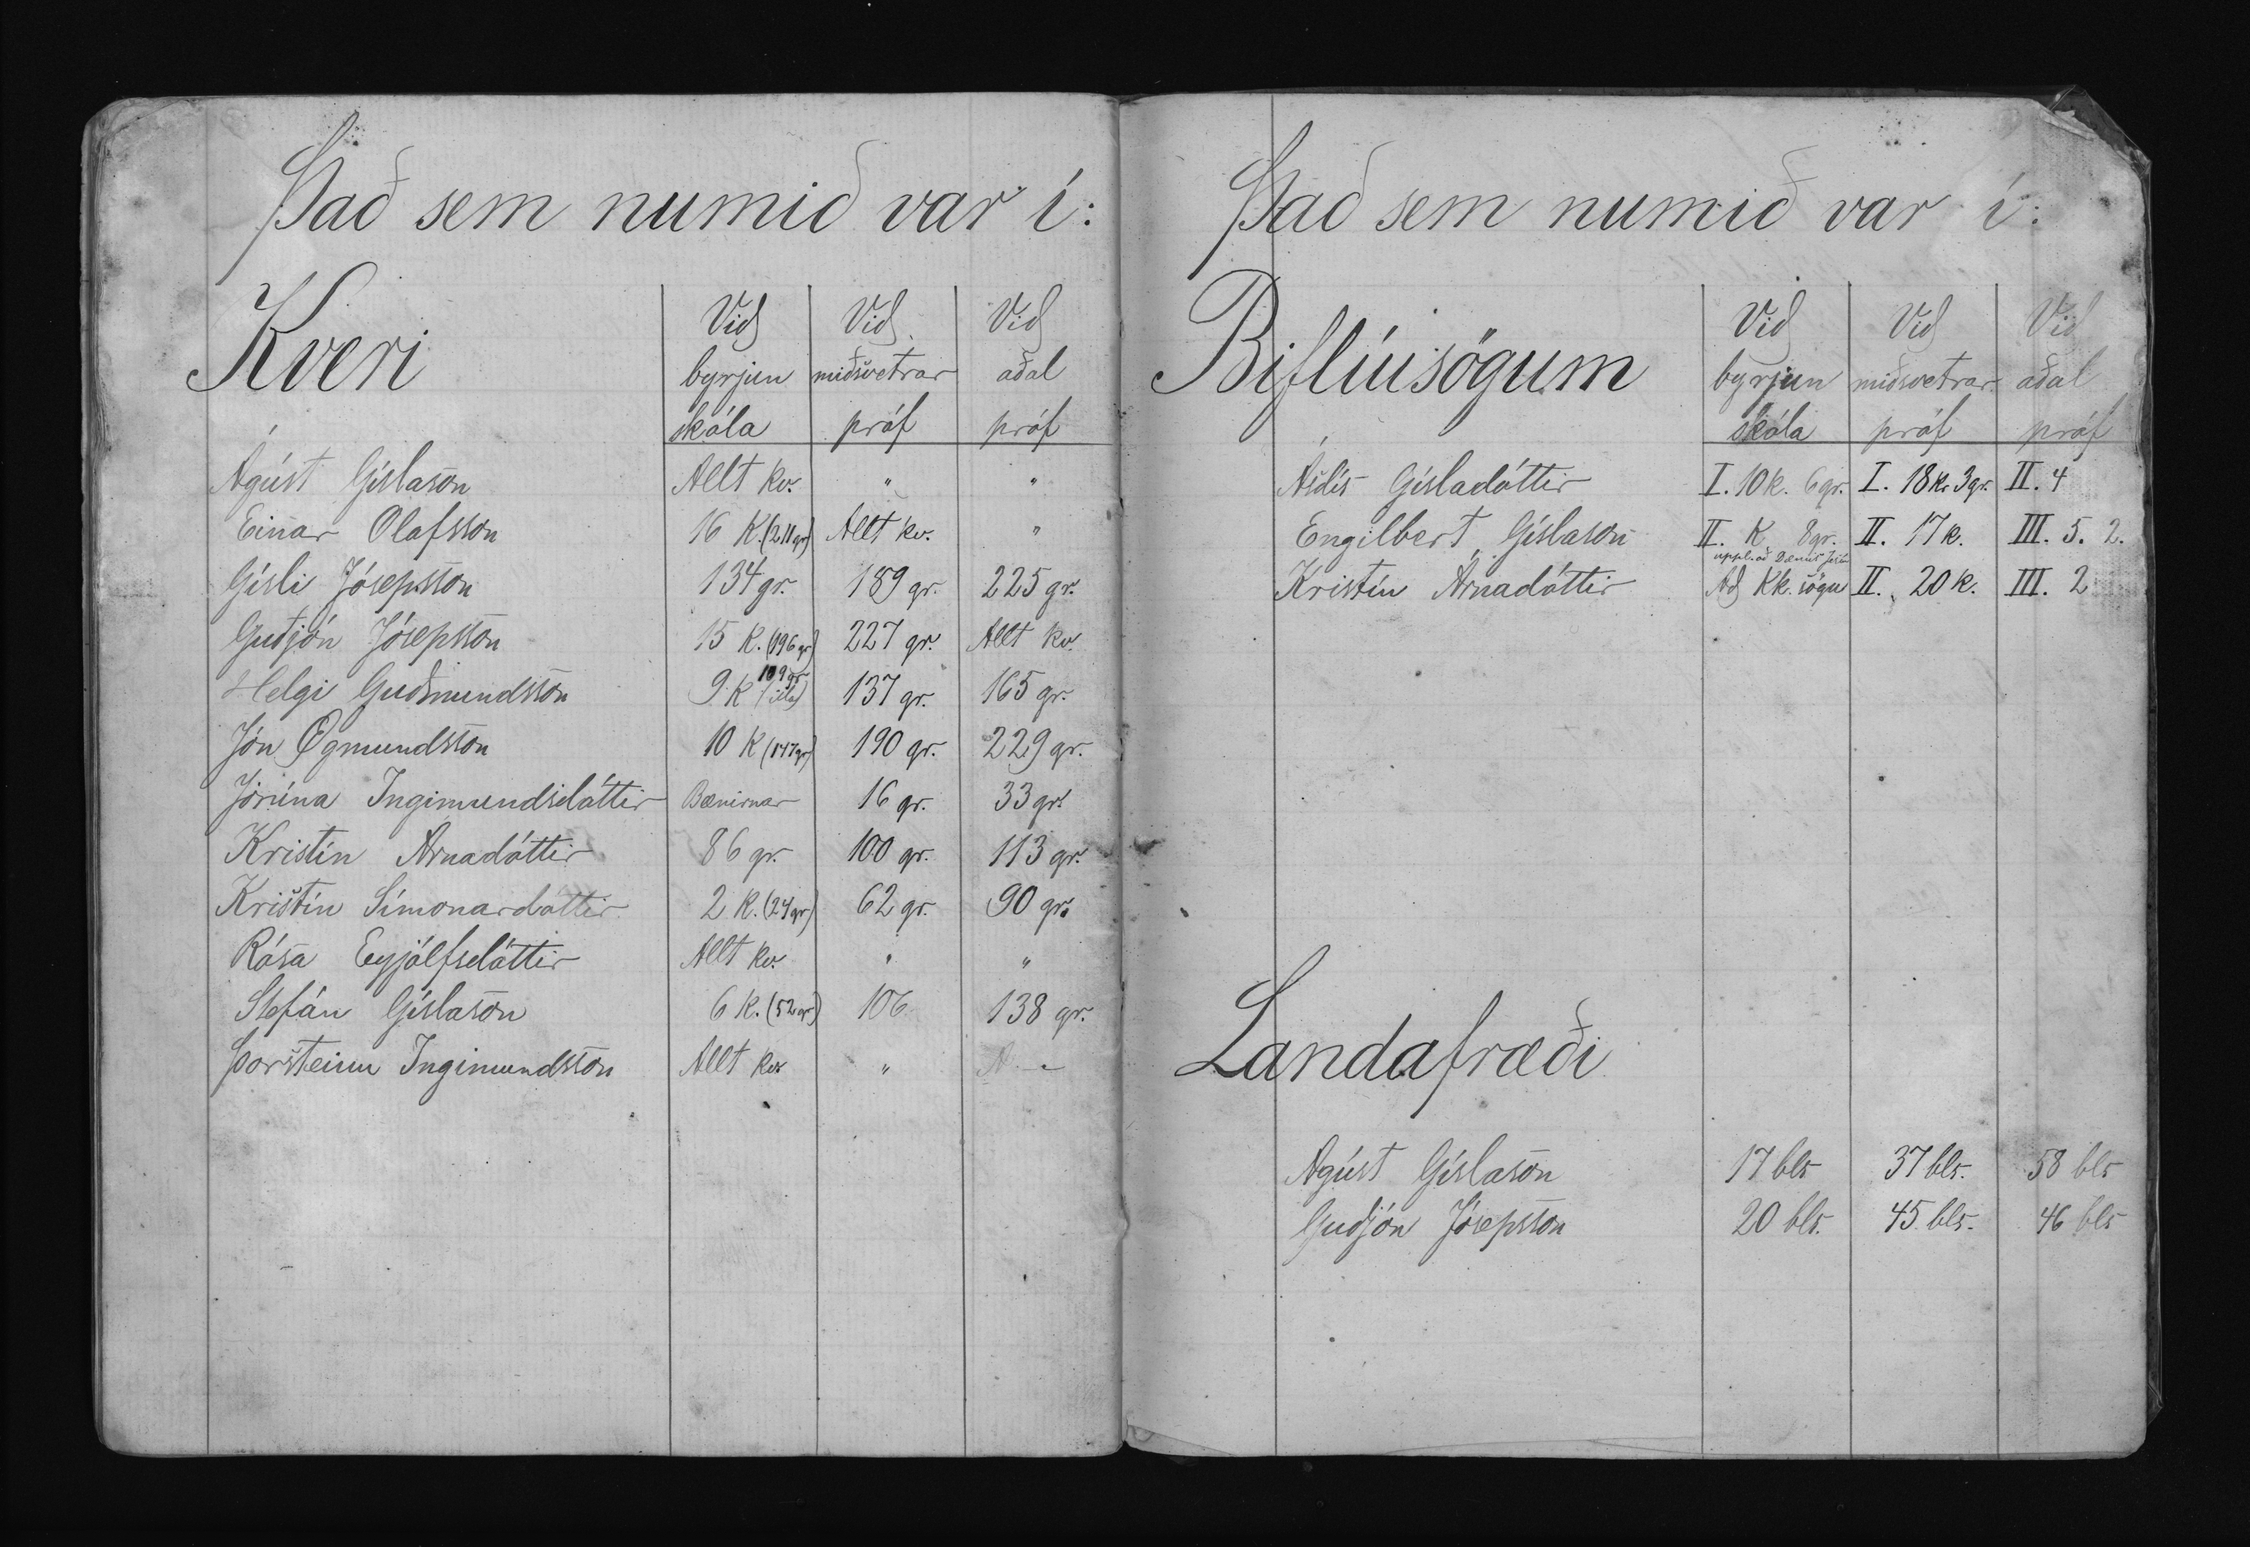 Það sem numið var í:
Kveri
Við byrjun skóla
Við miðsvetrar próf
Við aðal próf
Ágúst Gíslason Allt kv. " "
Einar Olafsson 16 K. (211 gr) Allt kv. "
Gísli Jósepsson 134 gr. 189 gr. 225 gr.
Guðjón Jósepsson 15 K. (196 gr) 227 gr. Allt kv.
Helgi Guðmundsson 9 K 109 gr. (illa) 137 gr. 165 gr.
Jón Ögmundsson 10 K (147 gr) 190 gr. 229 gr.
Jórúna Ingimundsdóttir Bænirnar 16 gr. 33 gr.
Kristín Arnadóttir 86 gr. 100 gr. 113 gr.
Kristín Símonardóttir 2 K. (24 gr) 62 gr. 90 gr.
Rósa Eyjólfsdóttir Allt kv. " "
Stefán Gíslason 6 K. (52 gr) 106 138 gr.
Þorsteinn Ingimundsson Allt kv. "
Það sem numið var í:
Biflíusögum
Við byrjun skóla
Við miðsvetrar próf
Við aðal próf
Ásdís Gísladóttir I. 10 k. 6 gr. I. 18 k. 3 gr. II. 4
Engilbert Gíslason II. K 8 gr. II. 17 k. III. 5. 2.
uppl. að Dæmis
Kristín Árnadóttir Að Kk. sögu II. 20 k. III. 2
Landafræði
Agúst Gíslason 17 bls 37 bls. 58 bls
Guðjón Jósepsson 20 bls. 45 bls. 46 bls